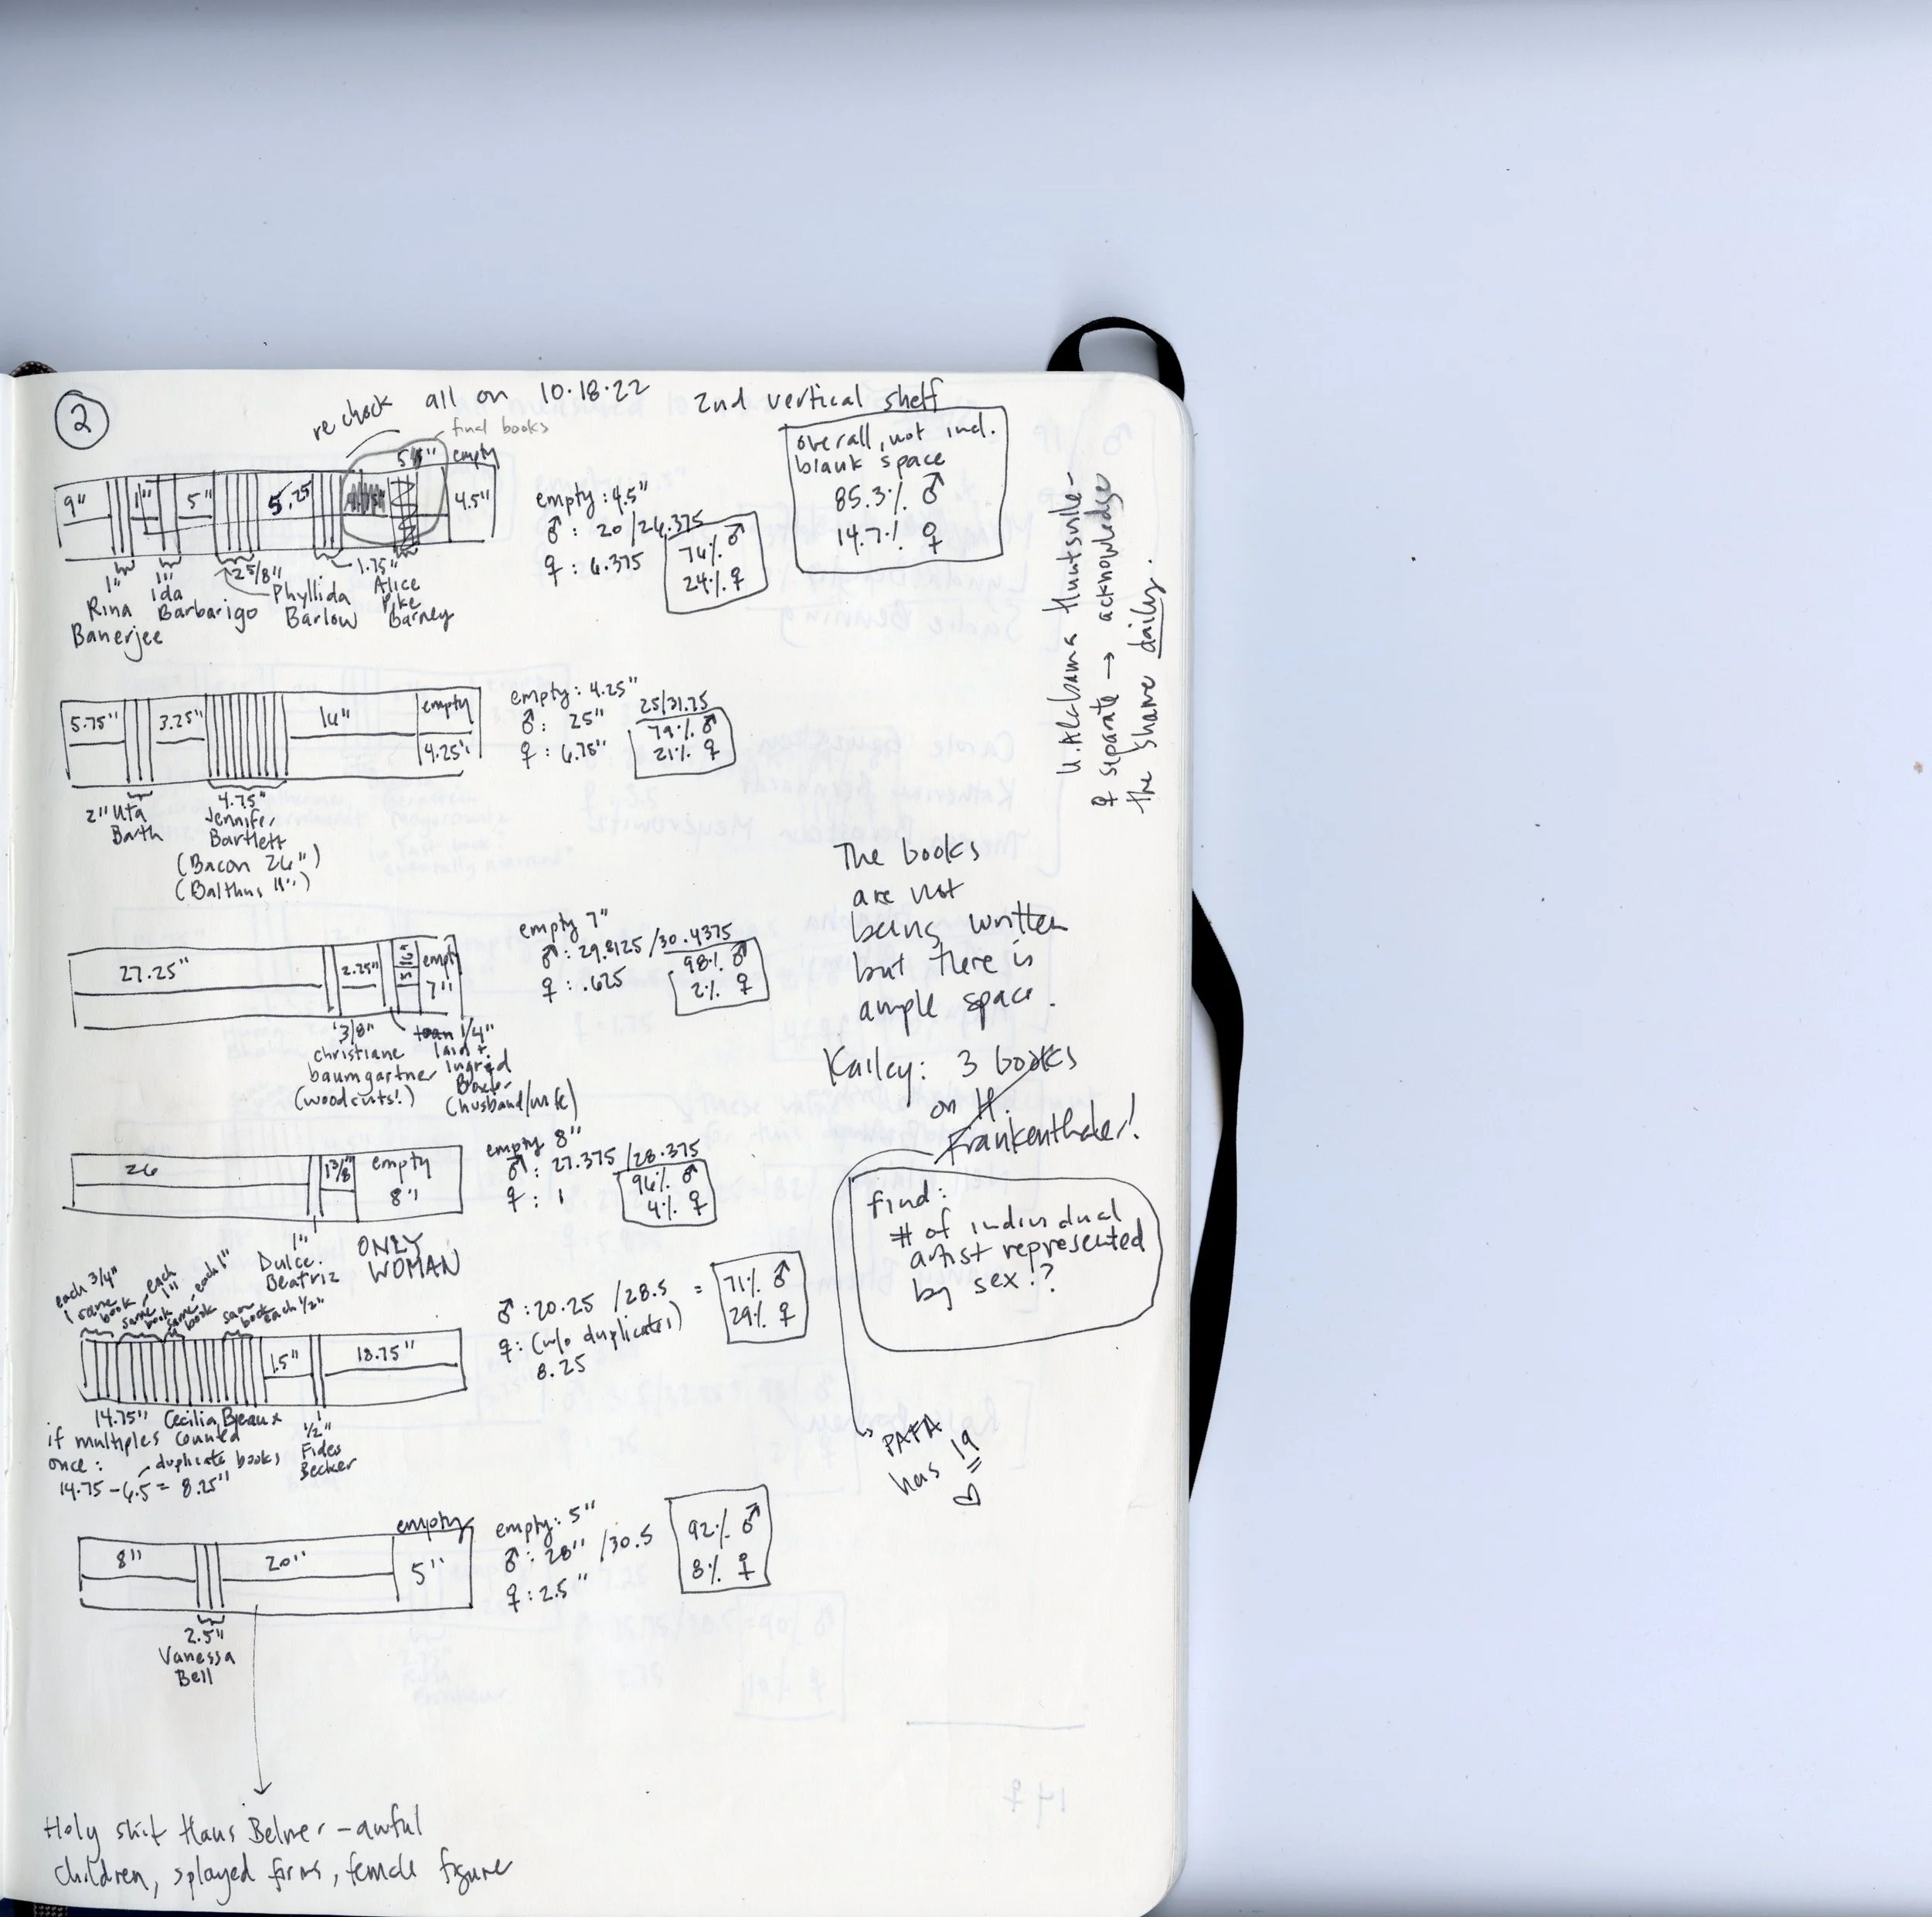 2
re check all on 10.18.22
2nd vertical shelf
final books
overall, not incl.
blank space
85.3% ♂
14.7% ♀
9"
1"
5"
5.25
5/8"
empty
4.5"
empty: 4.5"
♂: 20/26.375
♀: 6.375
76% ♂
24% ♀
1"
Rina
Banerjee
1"
Ida
Barbarigo
2 5/8"
Phyllida
Barlow
1.75"
Alice
Pike
Barney
U. Alabama Huntsville-
♀ separate → acknowledge
the share daily.
5.75"
3.25"
16"
empty
4.25"
empty: 4.25"
♂: 25"
♀: 6.75"
25/31.75
79% ♂
21% ♀
2" Uta
Barth
4.75"
Jennifer
Bartlett
(Bacon 26")
(Balthus 11")
The books
are not
being written
but there is
ample space.
27.25"
2.25"
5/16"
empty
7"
empty 7"
♂: 29.8125/30.4375
♀: .625
98% ♂
2% ♀
3/8"
christiane
baumgartner
(woodcuts!)
1/4"
Iain +
Ingrid
Baxter
(husband/wife)
Kailey: 3 books
on H.
Frankenthaler!
26
1 3/8"
empty
8"
empty 8"
♂: 27.375/28.375
♀: 1
96% ♂
4% ♀
1"
Dulce
Beatriz
ONLY
WOMAN
find:
# of individual
artist represented
by sex!?
PAFA
has 19
each 3/4"
same
book
each
1"
same
book
each 1"
same
book
same
book
each 1/2"
1.5"
18.75"
♂: 20.25 /28.5 =
♀: (w/o duplicates)
8.25
71% ♂
29% ♀
14.75" Cecilia Beaux
if multiples counted
once:
duplicate books
14.75 - 6.5 = 8.25"
1/2"
Fides
Becker
8"
20"
empty
5"
empty: 5"
♂: 28" /30.5
♀: 2.5"
92% ♂
8% ♀
2.5"
Vanessa
Bell
Holy shit Hans Belmer - awful
children, splayed forms, female figure